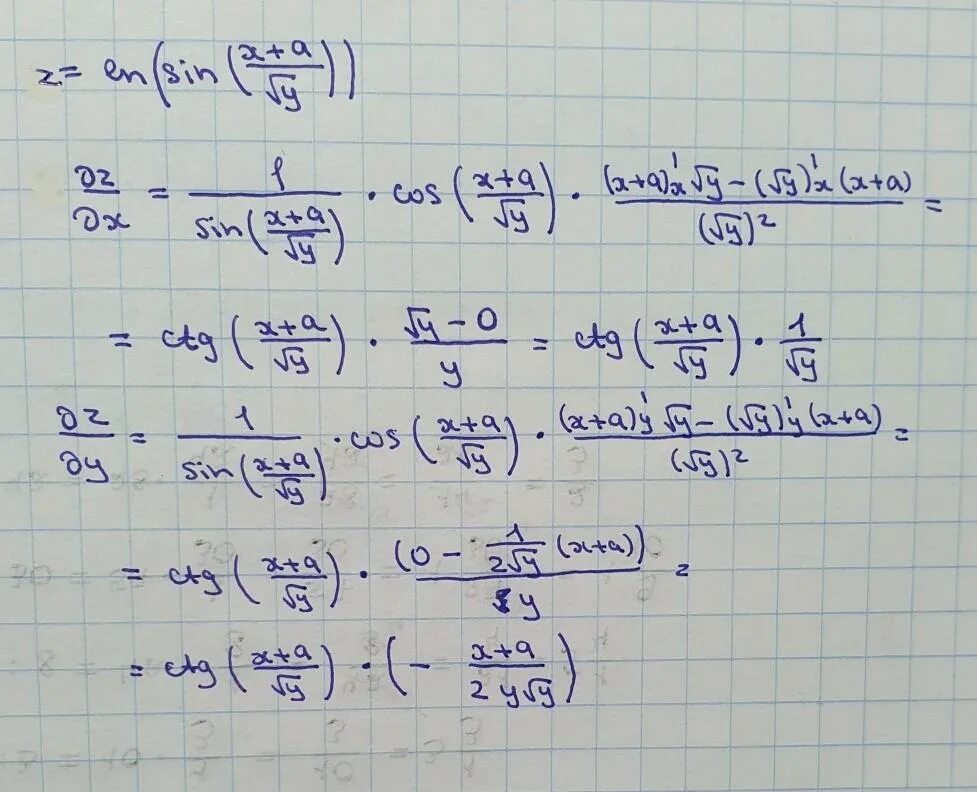 z = ln(sin((x+a)/√y))
∂z/∂x = 1/sin((x+a)/√y) · cos((x+a)/√y) · ((x+a)'ₓ √y − (√y)'ₓ (x+a))/(√y)² =
= ctg((x+a)/√y) · (√y − 0)/y = ctg((x+a)/√y) · 1/√y
∂z/∂y = 1/sin((x+a)/√y) · cos((x+a)/√y) · ((x+a)'_y √y − (√y)'_y (x+a))/(√y)² =
= ctg((x+a)/√y) · (0 − 1/(2√y) (x+a))/y =
= ctg((x+a)/√y) · (− (x+a)/(2y√y))